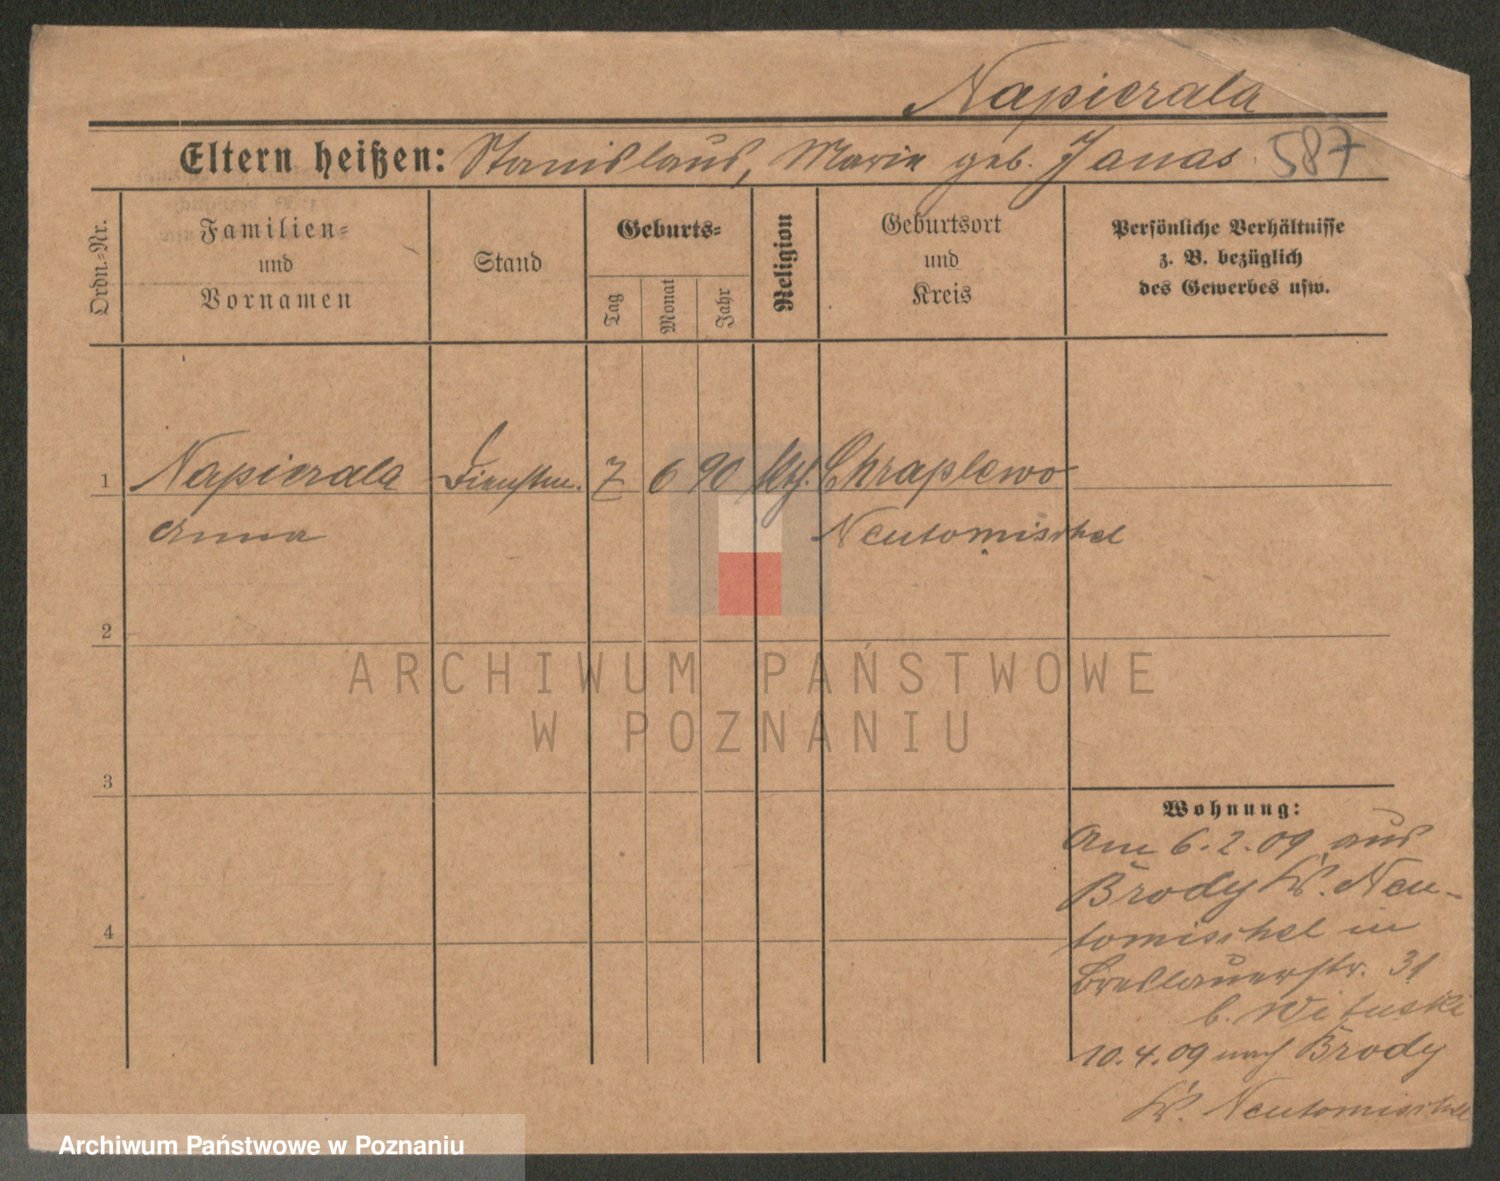 Napierala
Eltern heißen: Stanislaus, Maria geb. Janas 587
Ordn.-Nr.
Familien-
und
Vornamen
Stand
Geburts-
Tag
Monat
Jahr
Religion
Geburtsort
und
Kreis
Persönliche Verhältnisse
z. B. bezüglich
des Gewerbes usw.
1 Napierala Dienstm. 7 6 90 kth. Chraplewo
Anna Neutomischel
2
ARCHIWUM PAŃSTWOWE
W POZNANIU
3
Wohnung:
Am 6.2.09 aus
Brody Kr. Neu-
tomischel in
4
Breslauerstr. 31
b. Wituski
10.4.09 nach Brody
Kr. Neutomischel
Archiwum Państwowe w Poznaniu